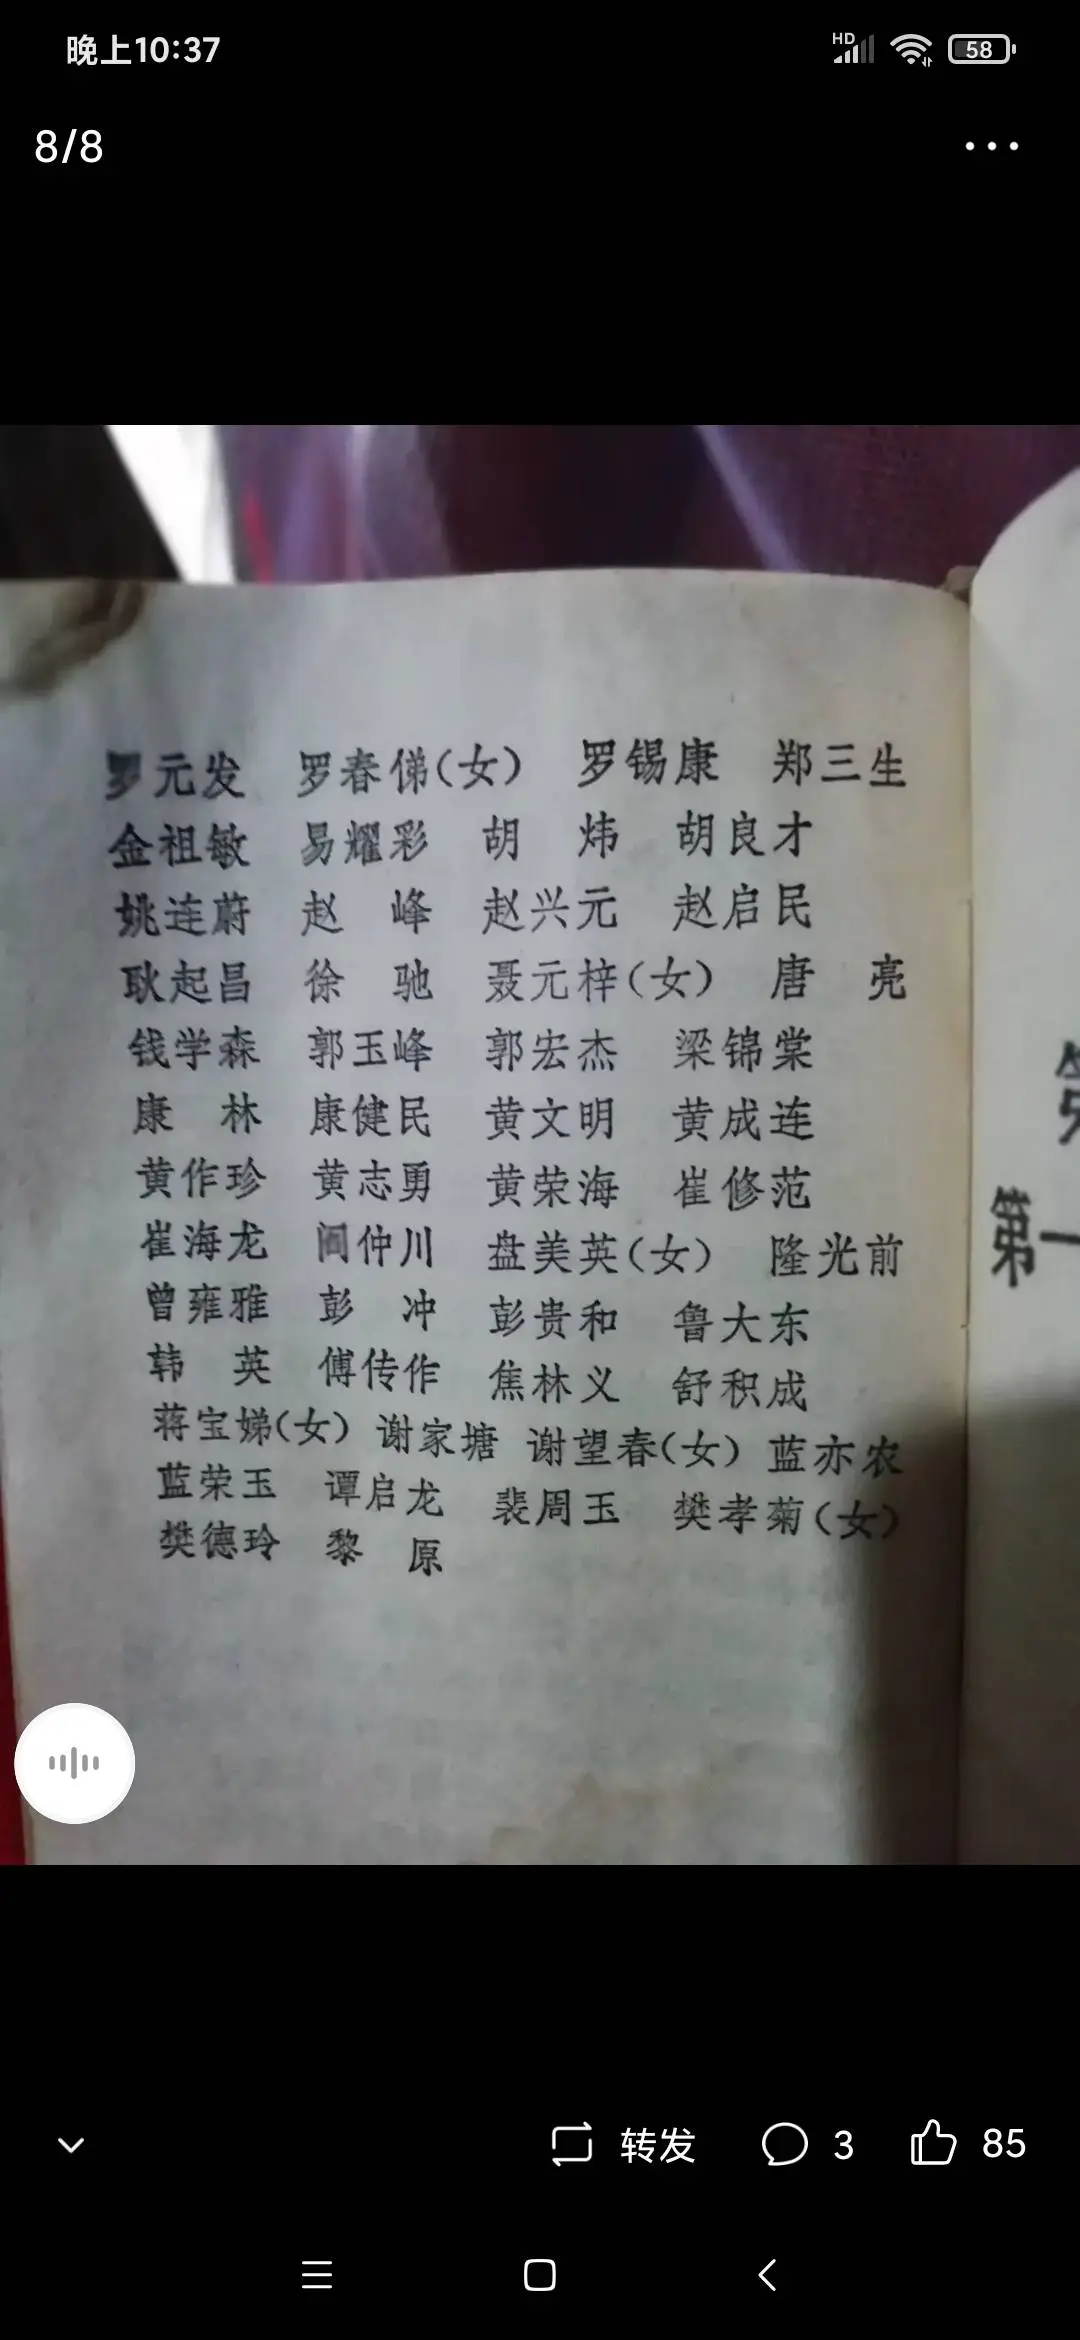 晚上10:37
HD 58
8/8
罗元发 罗春俤(女) 罗锡康 郑三生
金祖敏 易耀彩 胡 炜 胡良才
姚连蔚 赵 峰 赵兴元 赵启民
耿起昌 徐 驰 聂元梓(女) 唐 亮
钱学森 郭玉峰 郭宏杰 梁锦棠
康 林 康健民 黄文明 黄成连
黄作珍 黄志勇 黄荣海 崔修范
崔海龙 阎仲川 盘美英(女) 隆光前
曾雍雅 彭 冲 彭贵和 鲁大东
韩 英 傅传作 焦林义 舒积成
蒋宝娣(女) 谢家塘 谢望春(女) 蓝亦农
蓝荣玉 谭启龙 裴周玉 樊孝菊(女)
樊德玲 黎 原
第一
转发 3 85